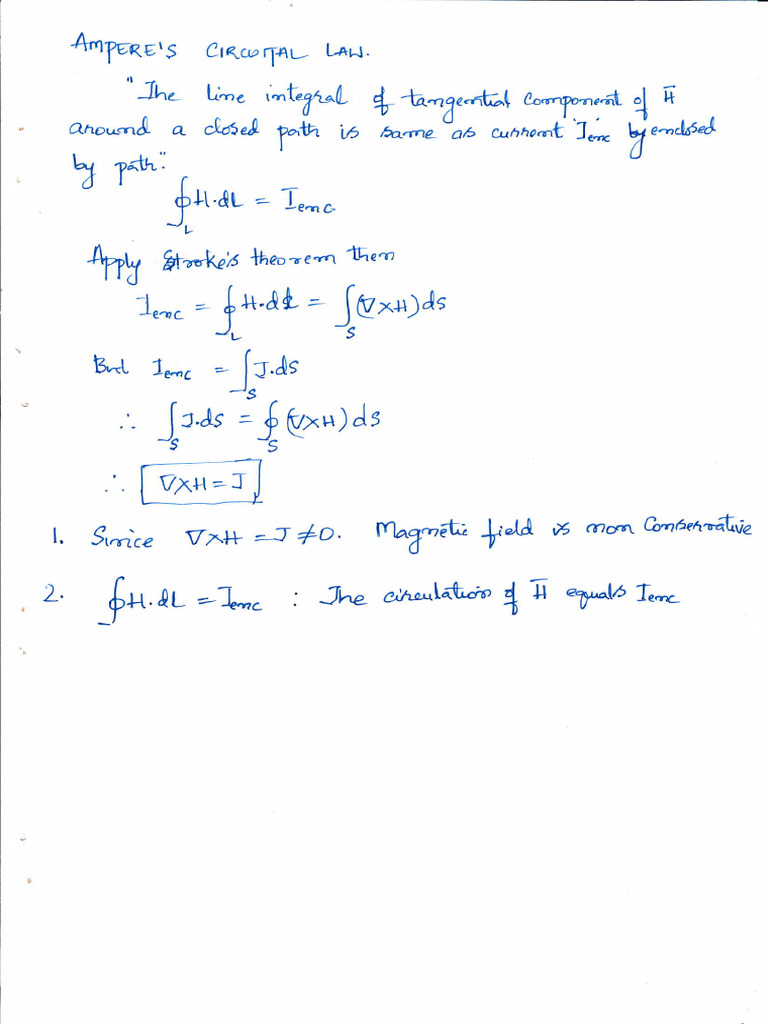 AMPERE'S CIRCUITAL LAW.
"The line integral of tangential component of H̅
around a closed path is same as current Ienc by enclosed
by path."
∮_L H.dL = Ienc
Apply Stroke's theorem then
Ienc = ∮_L H.dL = ∫_S (∇×H) ds
But Ienc = ∫_S J.ds
∴ ∫_S J.ds = ∮_S (∇×H) ds
∴ ∇×H = J
1. Since ∇×H = J ≠ 0. Magnetic field is non Conservative
2. ∮ H.dL = Ienc : The circulation of H̅ equals Ienc